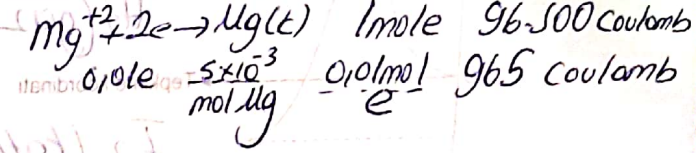 Mg⁺²+2e→Mg(k) 1mole 96.500 Coulomb
0,01e 5×10⁻³ mol Mg 0,01mol e 965 Coulomb